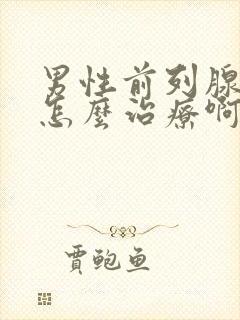 男性前列腺
怎麼治療啊
賈鲍鱼